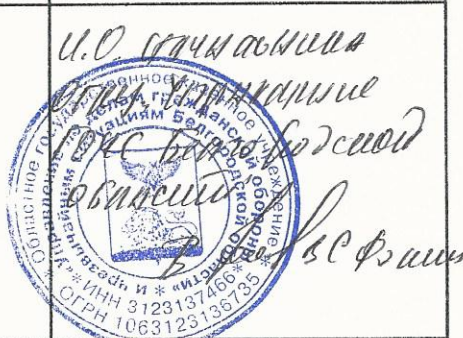 И.О. начальника
ГОЧС Белгородской
области
В.С.
Областное государственное казенное учреждение
«Управление по делам гражданской обороны
и чрезвычайным ситуациям Белгородской области»
* ИНН 3123137466 *
ОГРН 1063123136735